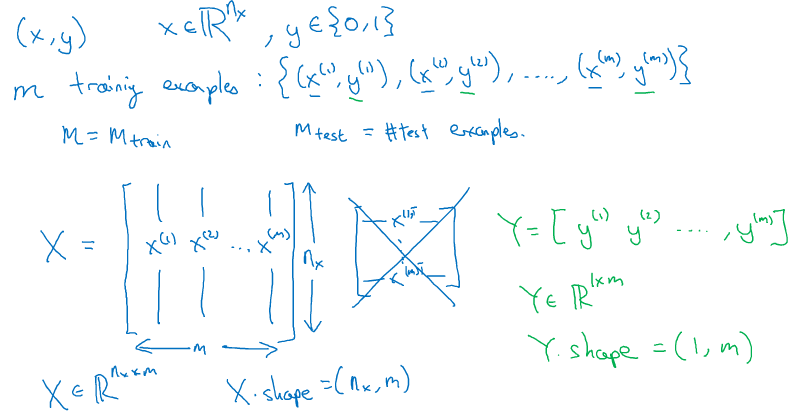 (x,y) x∈ℝ^{n_x}, y∈{0,1}
m trainiy examples : {(x^{(1)},y^{(1)}), (x^{(2)},y^{(2)}), ...., (x^{(m)},y^{(m)})}
M = M_{train} M_{test} = #test examples.
X = [x^{(1)} x^{(2)} ... x^{(m)}] n_x
m
x^{(1)T}
⋮
x^{(m)T}
Y = [y^{(1)} y^{(2)} ...., y^{(m)}]
Y∈ℝ^{1×m}
Y.shape = (1,m)
X∈ℝ^{n_x×m} X.shape = (n_x,m)